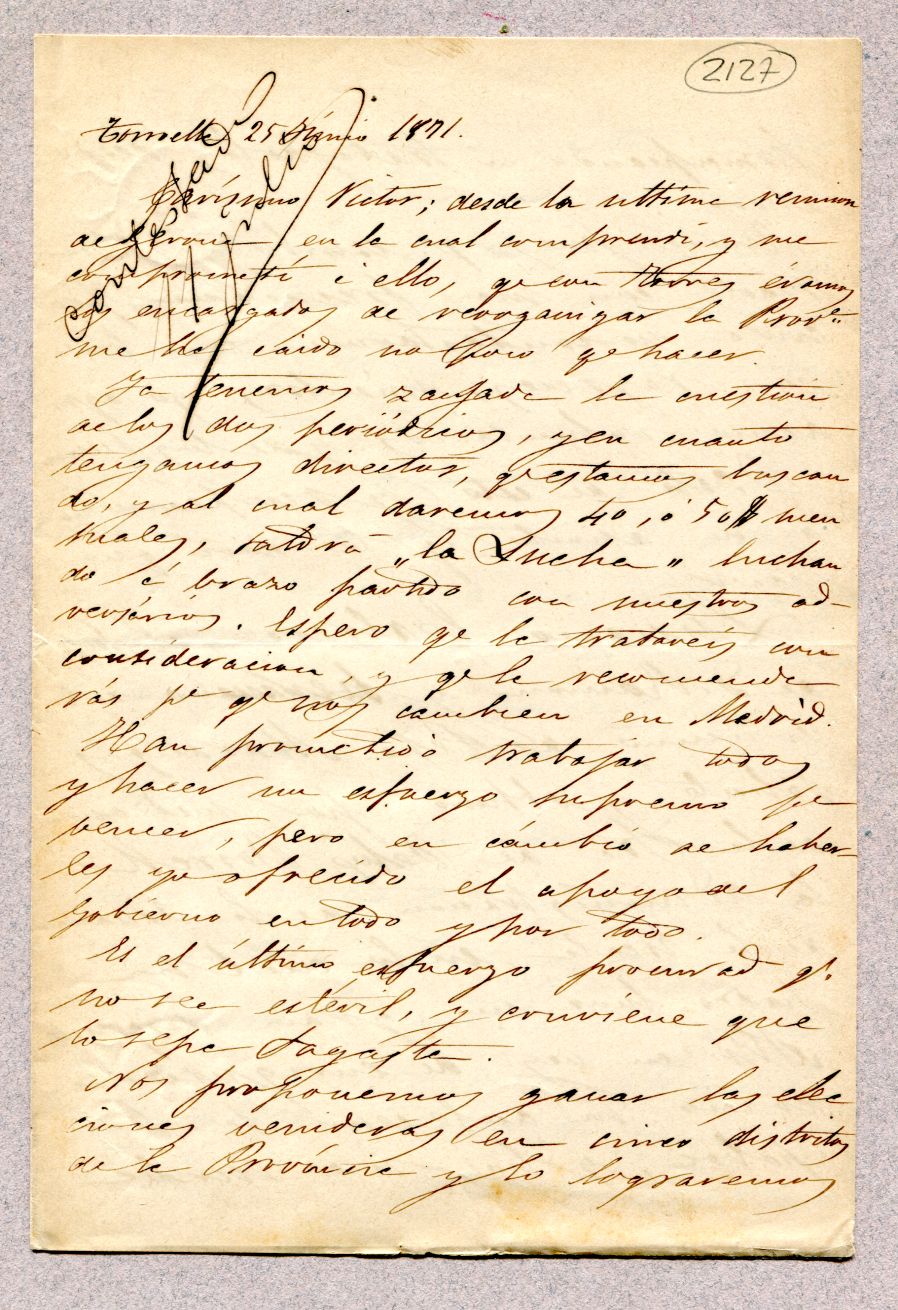 2127
Torroella 25 Junio 1871.
contestada
11 Julio
Caríssimo Victor; desde la ultima reunion
de Gerona en la cual comprendí, y me
comprometí á ello, qe con Torres éramos
los encargados de reorganizar la Prova
me ha caido no poco qe hacer.
Ya tenemos zanjada la cuestion
de los dos periódicos, y en cuanto
tengamos director, qe estamos buscan
do, y al cual daremos 40, ó 50 $ men
suales, saldrá "la Lucha" luchan
do á brazo partido con nuestros ad-
versários. Espero qe le trataréis con
consideracion, y qe le recomenda
rás pa qe nos cambien en Madrid.
Han prometido trabajar todos
y hacer un esfuerzo supremo pa
vencer, pero en cámbio de haber-
les yo ofrecido el apoyo del
Gobierno en todo y por todo.
Es el último esfuerzo procurad qe
no sea estéril, y conviene que
lo sepa Sagasta.
Nos proponemos ganar las elec
ciones venideras en cinco distritos
de la Provincia y lo lograremos